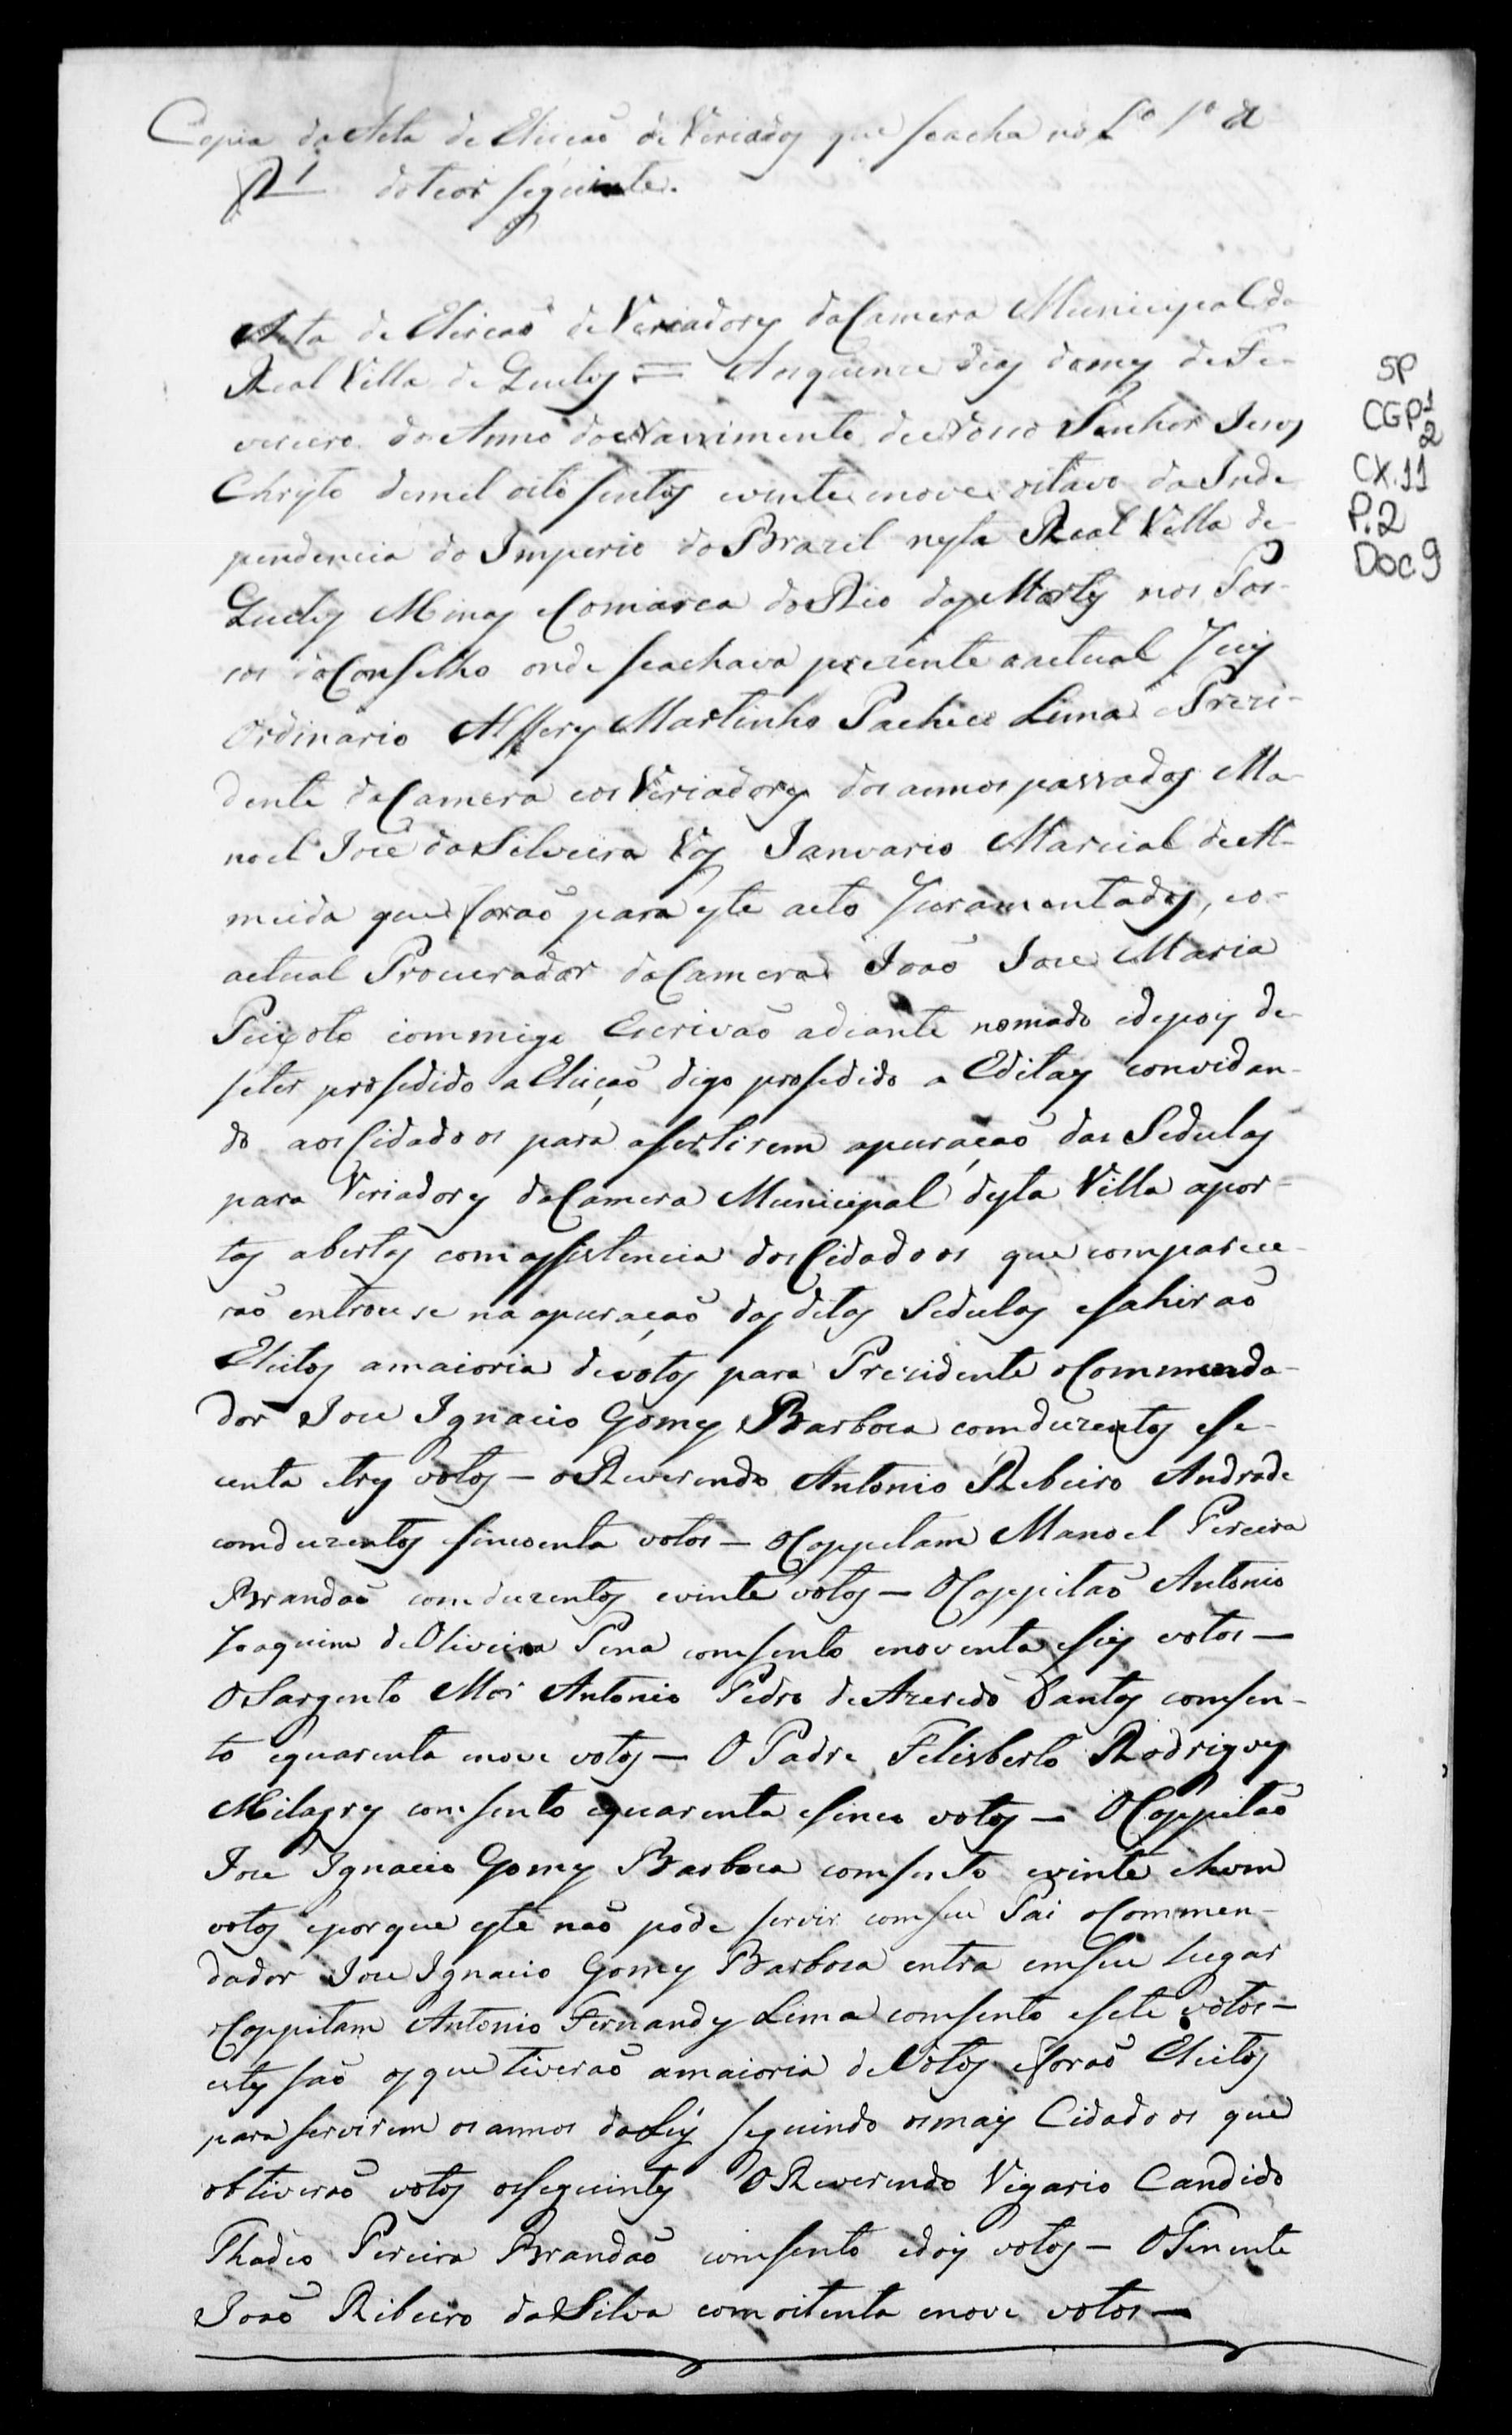 Copia da Acta de Eleicaõ de Veriadoj que seacha no L.º 1º a
f 1 doteor seguinte.
Acta de Eleicaõ de Veriadorej daCamera Municipal da
Real Villa de Queluj = Aosquinze diaj domej deFe-
vereiro do Anno doNassimento deNosso Senhor Jesuj
Chrjsto demil oito sentoj evinte enove oitavo da Inde
pendencia do Imperio do Brazil nesta Real Villa de
Queluj Minaj eComarca doRio dajMortej nos Pas-
sos doConselho onde seachava prezente aactual Juij
Ordinario Alfferej Martinho Pacheco Lima ePrezi-
dente daCamera eos Veriadorej dos annos passadoj Ma-
noel José da Silveira Vaj Januario Marcial de Al-
meida que foraõ para este acto Juramentadoj, eo-
actual Procurador daCamera Joaõ Joze Maria
Peixoto commigo Escrivaõ adiante nomiado edepoij de
seter prosedido a Eleiçaõ digo prosedido a Editaj convidan-
do aosCidadoos para asertirem apuraçaõ das Sedulaj
para Veriadorej daCamera Municipal desta Villa apor-
taj abertaj com assistencia dosCidadoos que comparece-
raõ entrouse na apuraçaõ daj ditaj Sedulaj esahiraõ
Eleitoj amaioria devotoj para Prezidente oCommenda-
dor Joze Ignacio Gomej Barboza comduzentoj ese-
centa etrej votoj – oReverendo Antonio Ribeiro Andrade
comduzentoj esincoenta votos – oCappitam Manoel Pereira
Brandaõ comduzentoj evinte votoj – OCappitaõ Antonio
Joaquim deOliveira Pena comsento enoventa eseij votos –
OSargento Mor Antonio Pedro deAzeredo Santoj comsen-
to equarenta enove votoj – O Padre Felisberto Rodriguej
Milagrej comsento equarenta esinco votoj – OCappitaõ
Joze Ignacio Gomej Barboza comsento evinte ehum
votoj eporque este naõ pode servir comseu Pai oCommen-
dador Joze Ignacio Gomej Barboza entra emseu lugar
oCappitam Antonio Fernandej Lima comsento esete votos –
estej saõ oj que tiveraõ amaioria deVotoj eforaõ Eleitoj
para servirem os annos daLej seguindo osmaij Cidadoos que
obtiveraõ votoj osseguintej OReverendo Vigario Candido
Thadeo Pereira Brandaõ comsento edoij votoj – OTenente
Joaõ Ribeiro daSilva comoitenta enove votos –
SP
CGP 1/2
CX.11
P.2
Doc 9